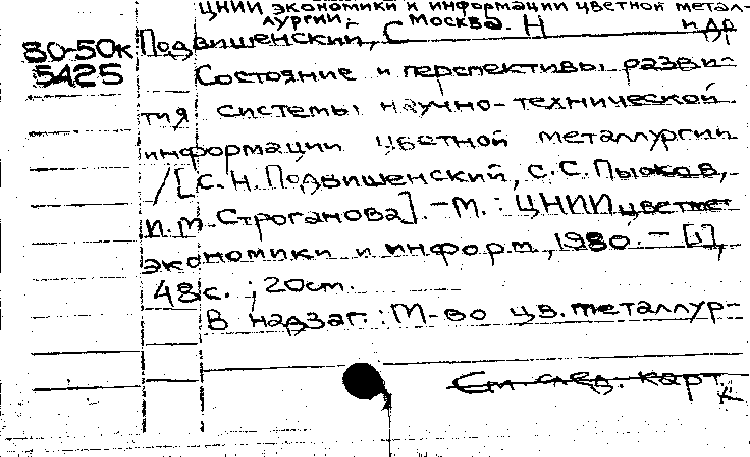 ЦНИИ экономики и информации цветной метал-
лургии, Москва.
80-50к Подвишенский, С Н и др
5425 Состояние и перспективы разви-
тия системы научно-технической
информации цветной металлургии
/[С.Н. Подвишенский, С.С. Пыжов,
И.М. Строганова]. - М.: ЦНИИцветмет
экономики и информ, 1980. - [1],
48с. ; 20см.
В надзаг.: М-во цв. металлур-
См след. карт.